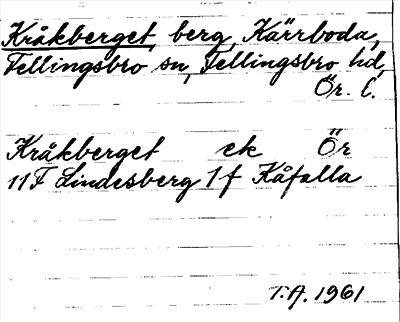 Kråkberget, berg, Kärrboda,
Fellingsbro sn, Fellingsbro hd,
Ör. l.
Kråkberget ek Ör
11F Lindesberg 1f Kåfalla
T.A. 1961